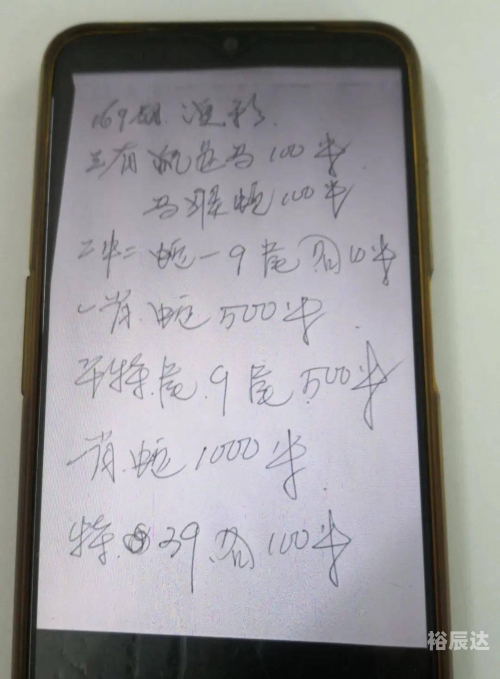 169期.澳彩.
三肖 蛇兔马100半
马猴蛇100半
二中二 蛇一9尾 各10半
一肖.蛇500半.
平特.尾.9尾500半
一肖.蛇1000半
特.39.各100半
裕辰达